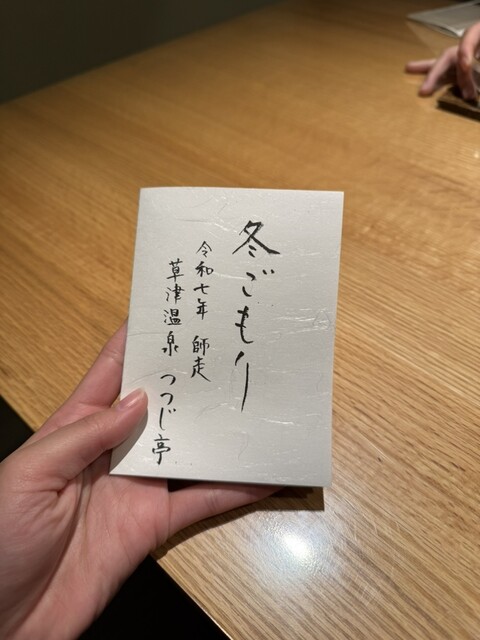 冬ごもり
令和七年 師走
草津温泉 つつじ亭